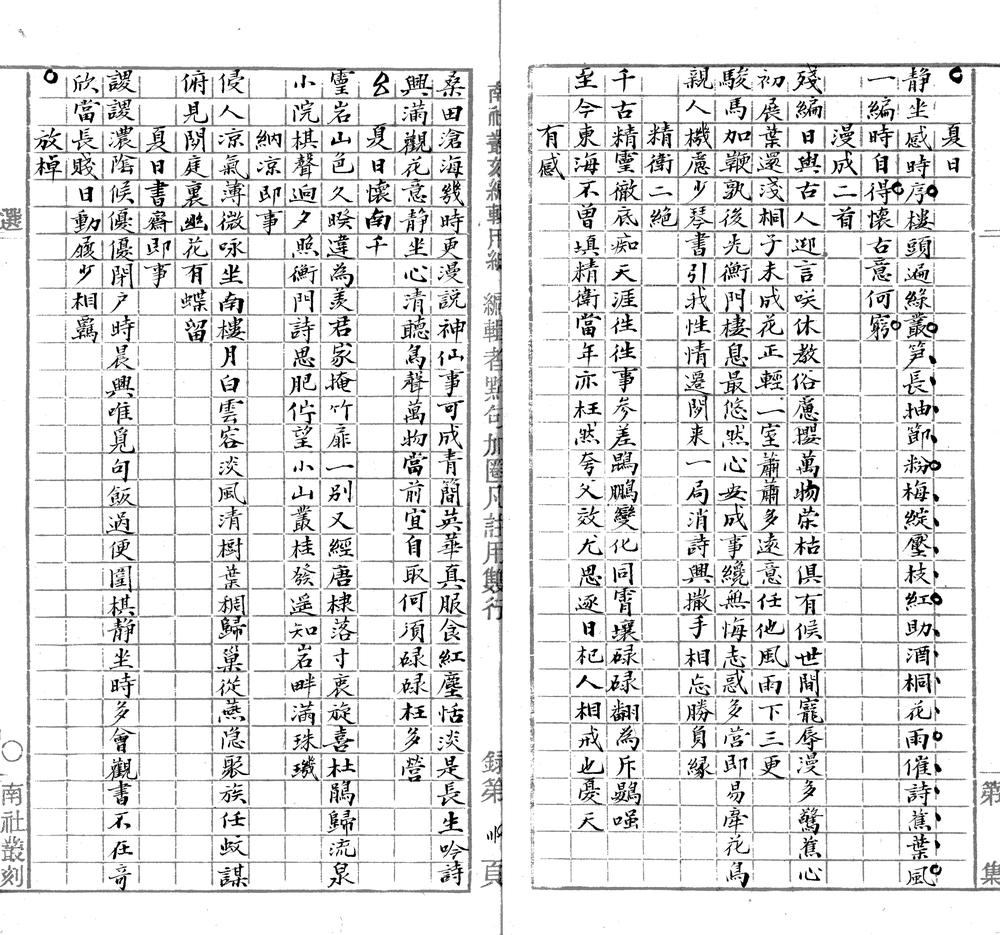 夏日
静坐感時序樓頭遍綠叢笋長抽節粉梅綻壓枝紅助酒桐花雨催詩蕉葉風
一編時自得懷古意何窮
漫成二首
殘編日與古人迎言咲休教俗慮攖萬物荣枯俱有候世間寵辱漫多驚蕉心
初展葉還淺桐子未成花正輕一室蕭蕭多遠意任他風雨下三更
駿馬加鞭孰後先衡門棲息最悠然心安成事纔無悔志惑多営即易牽花鳥
親人機慮少琴書引我性情遷閑来一局消詩興撒手相忘勝負緣
精衛二絕
千古精靈徹底痴天涯往往事參差鵾鵬變化同霄壤碌碌翻為斥鷃嗤
至今東海不曾填精衛當年亦枉然夸父效尤思逐日杞人相戒也憂天
有感
桑田滄海幾時更漫說神仙事可成青簡英華真服食紅塵恬淡是長生吟詩
興滿觀花意静坐心清聽鳥聲萬物當前宜自取何須碌碌枉多營
夏日懷南千
靈岩山色久暌違為羡君家掩竹扉一別又經唐棣落寸衷旋喜杜鵑歸流泉
小院棋聲迥夕照衡門詩思肥佇望小山叢桂發遥知岩畔滿珠璣
納凉即事
侵人凉氣薄微咏坐南樓月白雲容淡風清樹葉稠歸巢從燕隐聚族任蚊謀
俯見閑庭裏幽花有蝶留
夏日書齋即事
謖謖濃陰候優優閉户時晨興唯覓句飯過便圍棋静坐時多會觀書不在奇
欣當長賤日動履少相羈
放棹
南社叢刻編輯用紙 編輯者點句加圈凡註用雙行 録第 頁
第 集
選 〇 南社叢刻